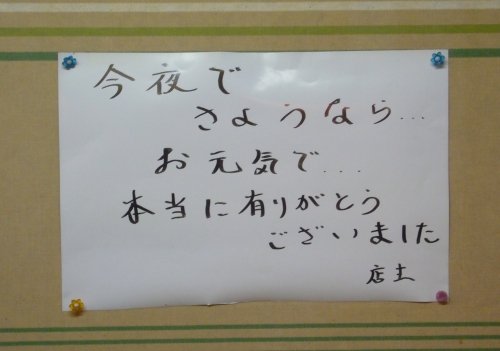 今夜で
さようなら...
お元気で...
本当に有りがとう
ございました
店主